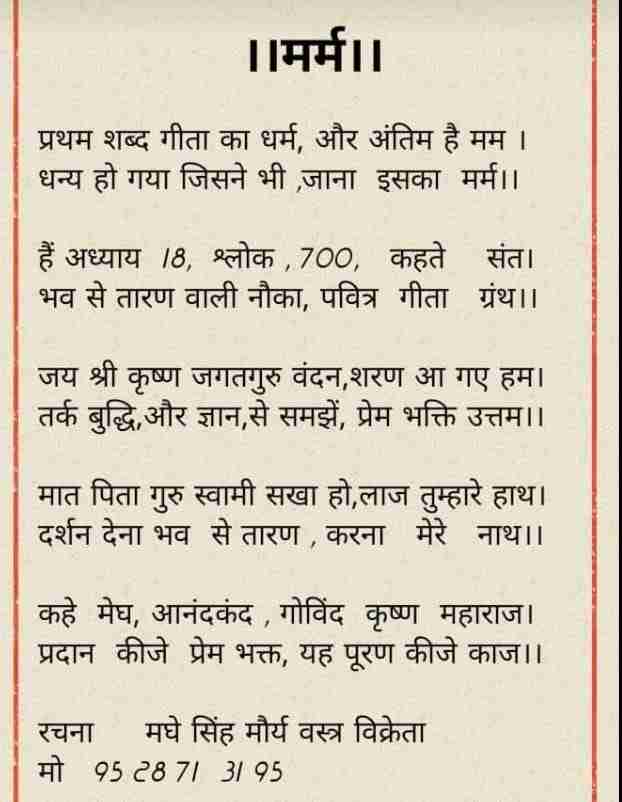 ।।मर्म।।
प्रथम शब्द गीता का धर्म, और अंतिम है मम ।
धन्य हो गया जिसने भी ,जाना इसका मर्म।।
हैं अध्याय 18, श्लोक ,700, कहते संत।
भव से तारण वाली नौका, पवित्र गीता ग्रंथ।।
जय श्री कृष्ण जगतगुरु वंदन,शरण आ गए हम।
तर्क बुद्धि,और ज्ञान,से समझें, प्रेम भक्ति उत्तम।।
मात पिता गुरु स्वामी सखा हो,लाज तुम्हारे हाथ।
दर्शन देना भव से तारण , करना मेरे नाथ।।
कहे मेघ, आनंदकंद , गोविंद कृष्ण महाराज।
प्रदान कीजे प्रेम भक्त, यह पूरण कीजे काज।।
रचना मघे सिंह मौर्य वस्त्र विक्रेता
मो 95 28 71 31 95